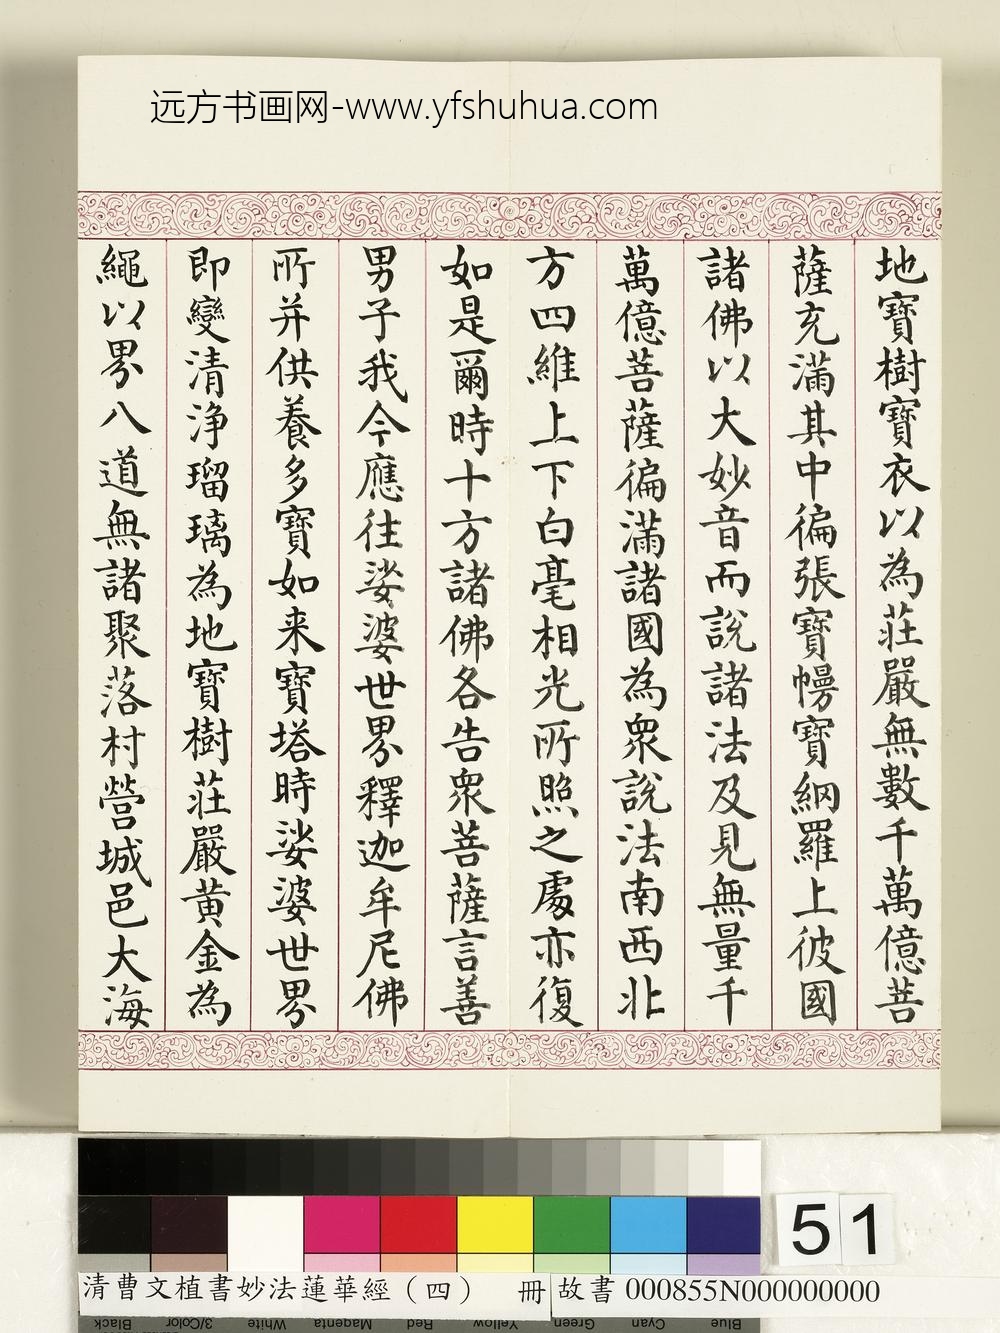 远方书画网-www.yfshuhua.com
地寶樹寶衣以為莊嚴無數千萬億菩
薩充滿其中徧張寶幔寶網羅上彼國
諸佛以大妙音而說諸法及見無量千
萬億菩薩徧滿諸國為眾說法南西北
方四維上下白毫相光所照之處亦復
如是爾時十方諸佛各告眾菩薩言善
男子我今應往娑婆世界釋迦牟尼佛
所并供養多寶如来寶塔時娑婆世界
即變清淨瑠璃為地寶樹莊嚴黃金為
繩以界八道無諸聚落村營城邑大海
51
清曹文植書妙法蓮華經（四） 冊
故書 000855N000000000
Black 3/Color White Magenta Red Yellow Green Cyan Blue